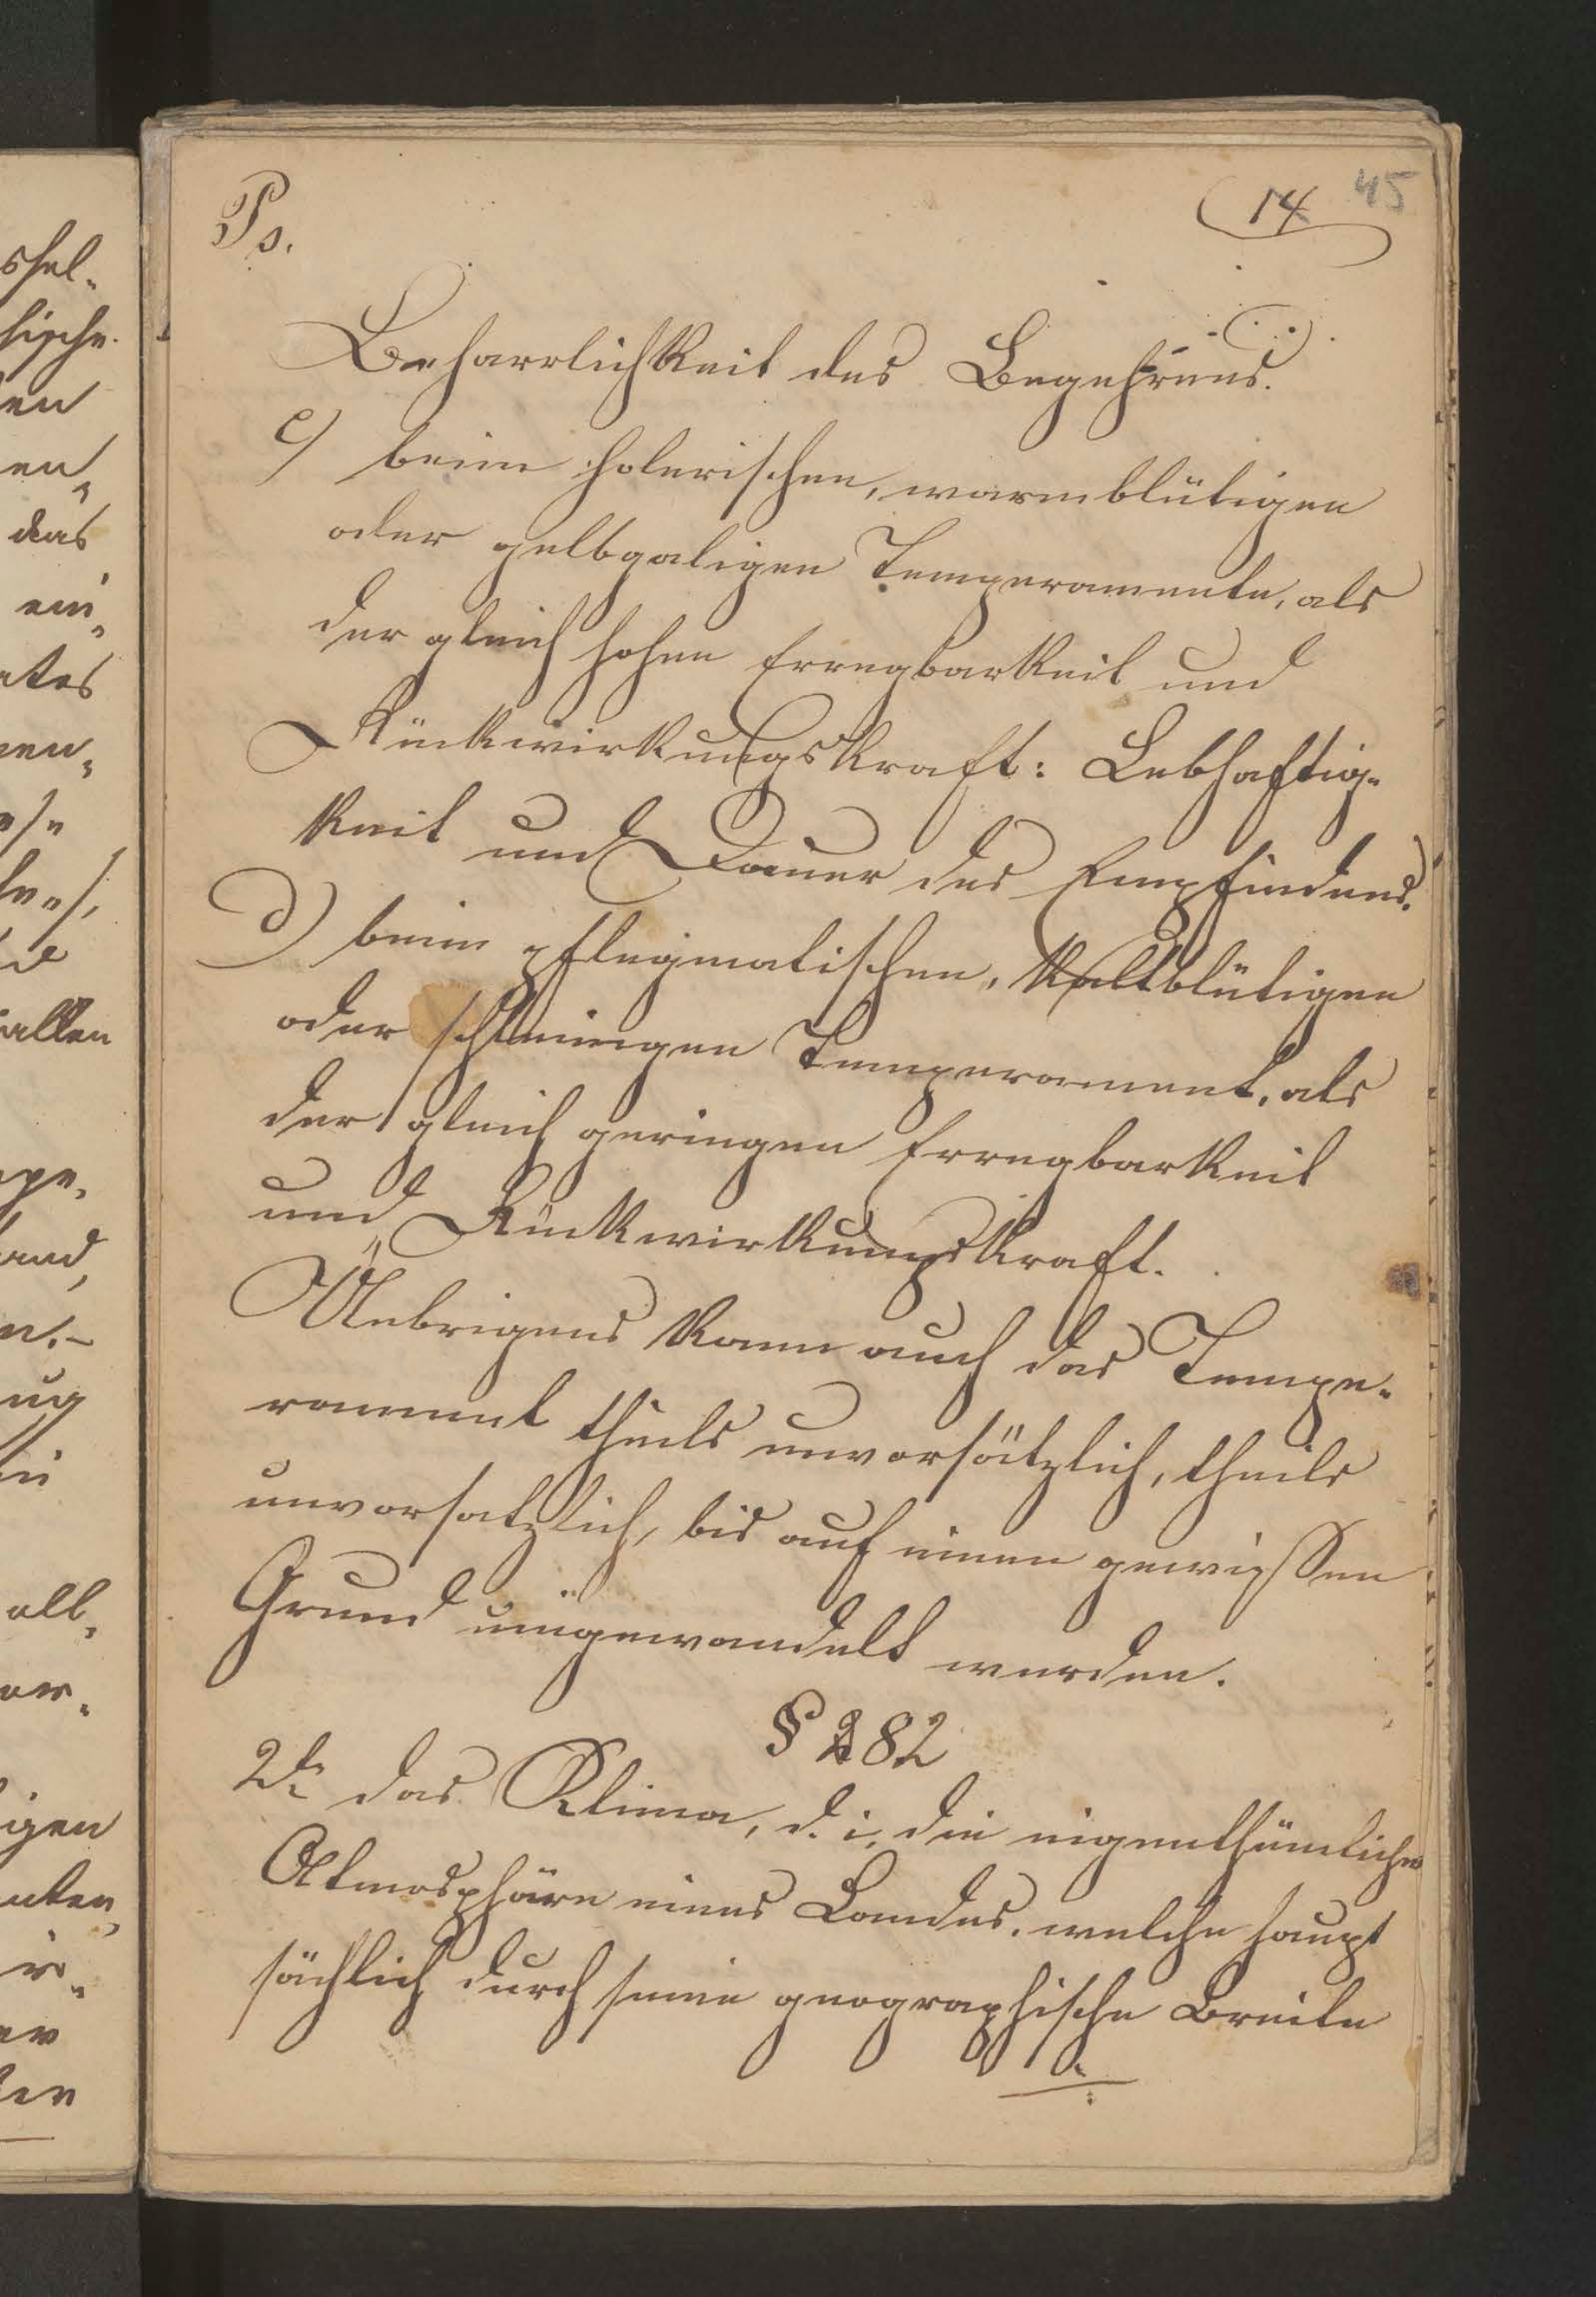 Ps.
14 45
Beharrlichkeit des Begehrens.
c) beim cholerischen, warmblütigen
oder gelbgaligen Temperamente, als
der gleich hohen Erregbarkeit und
Rückwirkungskraft: Lebhaftig-
keit und Dauer des Empfindens.
d) beim pflegmatischen, kaltblütigen
oder schleimigen Temperament, als
der gleich geringen Erregbarkeit
und Rückwirkungskraft.
Uebrigens kann auch das Tempe-
rament theils unvorsätzlich, theils
unvorsatzlich, bis auf einen gewissen
Grund umgewandelt werden.
§ 282
2te das Klima, d. i. die eigenthümliche
Atmosphäre eines Landes, welche haupt
sächlich durch seine geographische Breite
shel-
hische
en
en-
das
ein-
ates
nen-
allen
and,
n.-
ug
all-
vor-
igen
nten,
ir-
er
ter